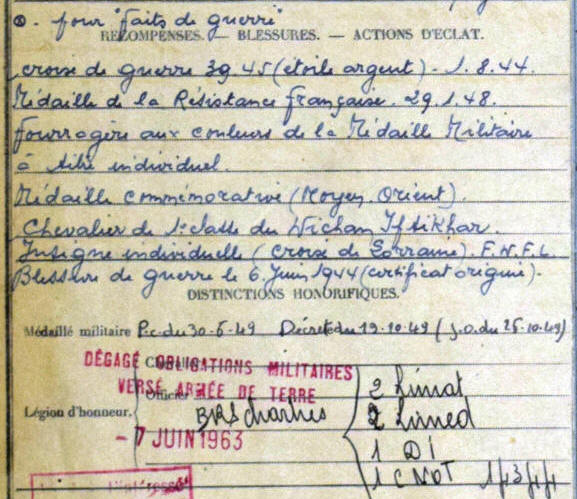 ⊕. pour "faits de guerre"
RECOMPENSES. — BLESSURES. — ACTIONS D'ECLAT.
croix de guerre 39.45 (étoile argent). 1.8.44.
Médaille de la Résistance française. 29.1.48.
Fourragère aux couleurs de la Médaille Militaire
à titre individuel.
Médaille commémorative (Moyen. Orient).
Chevalier de 1e classe du Nichan Iftikhar.
Insigne individuelle (croix de Lorraine). F.N.F.L.
Blessure de guerre le 6 Juin 1944 (certificat origine).
DISTINCTIONS HONORIFIQUES.
Médaillé militaire P.c. du 30-6-49 Décret du 19-10-49 (J.O. du 25-10-49)
DÉGAGÉ OBLIGATIONS MILITAIRES
VERSÉ ARMÉE DE TERRE
Officier
2 Limat
Légion d'honneur.
2 Limed
- 7 JUIN 1963
1 DI
1 CNOT